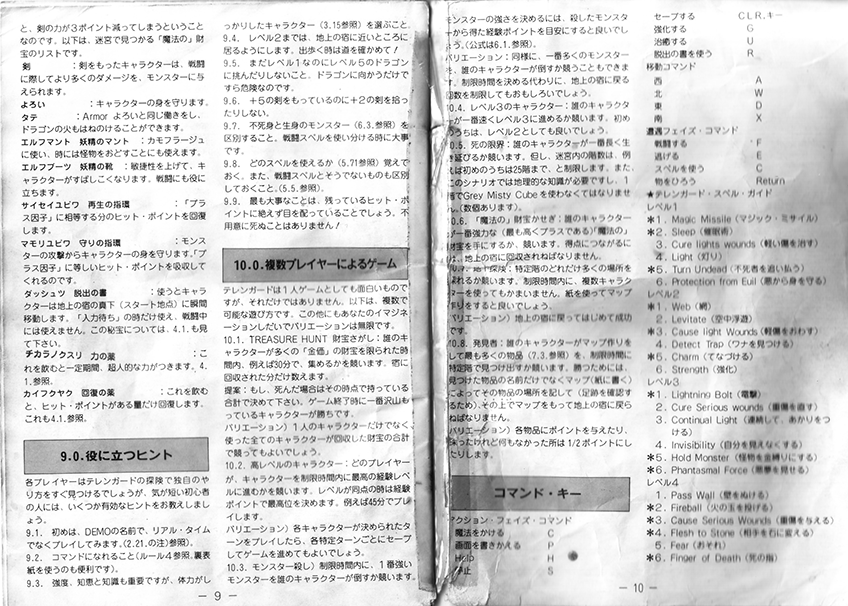 と、剣の力が3ポイント減ってしまうということ
なのです。以下は、迷宮で見つかる「魔法の」財
宝のリストです。
剣 : 剣をもったキャラクターは、戦闘
に際してより多くのダメージを、モンスターに与
えられます。
よろい : キャラクターの身を守ります。
タテ : Armor よろいと同じ働きをし、
ドラゴンの火もはねのけることができます。
エルフマント 妖精のマント : カモフラージュ
に使い、時には怪物をおどすことにも使えます。
エルフブーツ 妖精の靴 : 敏捷性を上げて、キ
ャラクターがすばしこくなります。戦闘にも役に
立ちます。
サイセイユビワ 再生の指環 : 「プラ
ス因子」に相等する分のヒット・ポイントを回復
します。
マモリユビワ 守りの指環 : モンス
ターの攻撃からキャラクターの身を守ります。「プ
ラス因子」に等しいヒット・ポイントを吸収して
くれるのです。
ダッシュツ 脱出の書 : 使うとキャラ
クターは地上の宿の真下(スタート地点)に瞬間
移動します。「入力待ち」の時だけ使え、戦闘中
には使えません。この秘宝については、4.1.も見
て下さい。
チカラノクスリ 力の薬 : こ
れを飲むと一定期間、超人的な力がつきます。4.
1.参照。
カイフクヤク 回復の薬 : これを飲む
と、ヒット・ポイントがある量だけ回復します。
これも4.1.参照。
9.0.役に立つヒント
各プレイヤーはテンガードの探険で独自のや
り方をすぐ見つけるでしょうが、気が短い初心者
の人には、いくつか有効なヒントをお教えしまし
ょう。
9.1. 初めは、DEMOの名前で、リアル・タイム
でなくプレイしてみます。(2.21.の注)参照)。
9.2. コマンドになれること(ルール4参照、裏表
紙を使うのも便利です)。
9.3. 強度、知恵と知識も重要ですが、体力がし
っかりしたキャラクター(3.15参照)を選ぶこと。
9.4. レベル2までは、地上の宿に近いところに
居るようにします。出歩く時は道を確かめて!
9.5. まだレベル1なのにレベル5のドラゴン
に挑んだりしないこと、ドラゴンに向かうだけで
すら危険なのです。
9.6. +5の剣をもっているのに+2の剣を拾っ
たりしない。
9.7. 不死身と生身のモンスター(6.3.参照)を
区別すること、戦闘スペルを使い分ける時に大事
です。
9.8. どのスペルを使えるか(5.71参照)覚えて
おく。また、戦闘スペルとそうでないものも区別
しておくこと。(5.5.参照)。
9.9. 最も大事なことは、残っているヒット・ポ
イントに絶えず目を配っていることでしょう、不
用意に死ぬことはありません!
10.0.複数プレイヤーによるゲーム
テレンガードは1人ゲームとしても面白いもので
すが、それだけではありません。以下は、複数で
可能な遊び方です。この他にもあなたのイマジネ
ーションしだいでバリエーションは無限です。
10.1. TREASURE HUNT 財宝さがし:誰のキ
ャラクターが多くの「金価」の財宝を限られた時
間内、例えば30分で、集めるかを競います。宿に
回収された分だけ数えます。
提案:もし、死んだ場合はその時点で持っている
合計で決めて下さい。ゲーム終了時に一番沢山も
っているキャラクターが勝ちです。
バリエーション)1人のキャラクターだけでなく、
使った全てのキャラクターが回収した財宝の合計
で競ってもよいでしょう。
10.2. 高レベルのキャラクター:どのプレイヤー
が、キャラクターを制限時間内に最高の経験レベ
ルに進むかを競います。レベルが同点の時は経験
ポイントで最高位を決めます。例えば45分でプレ
イします。
バリエーション)各キャラクターが決められたタ
ーンをプレイしたら、各特定ターンごとにセーブ
してゲームを進めてもよいでしょう。
10.3. モンスター殺し)制限時間内に、1番強い
モンスターを誰のキャラクターが倒すか競います。
— 9 —
モンスターの強さを決めるには、殺したモンスタ
ーから得た経験ポイントを目安にすると良いでし
ょう。(公式は6.1.参照)。
バリエーション:同様に、一番多くのモンスター
を、誰のキャラクターが倒すか競うこともできま
す。制限時間を決める代わりに、地上の宿に戻る
回数を制限してもおもしろいでしょう。
10.4. レベル3のキャラクター:誰のキャラクタ
ーが一番速くレベル3に進めるか競います。初め
のうちは、レベル2としても良いでしょう。
10.5. 死の限界:誰のキャラクターが一番長く生
き延びるか競います。但し、迷宮内の階数は、例
えば初めのうちは25階まで、と制限します。また、
このシナリオでは地理的な知識が必要ですし、1
階でGrey Misty Cubeを使わなくてはなりませ
ん。(数個あります)。
10.6. 「魔法の」財宝かせぎ:誰のキャラクター
が一番強力な(最も高くプラスである)「魔法の」
財宝を手にするか、競います。得点につながるに
は、地上の宿に回収されねばなりません。
10.7. 地下探険:特定階のどれだけ多くの場所を
訪れるか競います。制限時間内に、複数キャラク
ターを使ってもかまいません。紙を使ってマップ
作りをすると良いでしょう。
バリエーション)地上の宿に戻ってはじめて成功
です。
10.8. 発見者:誰のキャラクターがマップ作りを
して最も多くの物品(7.3.参照)を、制限時間に
特定階で見つけ出すか競います。勝つためには、
見つけた物品の名前だけでなくマップ(紙に書く)
によってその物品の場所を記して(足跡を確認す
るため)、その上でマップをもって地上の宿に戻ら
ねばなりません。
バリエーション)各物品にポイントを与えたり、
来ったけれど何もなかった所は1/2ポイントにし
たりします。
コマンド・キー
アクション・フェイズ・コマンド
魔法をかける C
画面を書きかえる P
Help H
停止 S
セーブする CLR.キー
強化する G
治癒する U
脱出の書を使う R
移動コマンド
西 A
北 W
東 D
南 X
遭遇フェイズ・コマンド
戦闘する F
逃げる E
スペルを使う C
物をひろう Return
★テレンガード・スペル・ガイド
レベル1
*1. Magic Missile(マジック・ミサイル)
*2. Sleep(催眠術)
3. Cure lights wounds(軽い傷を治す)
4. Light(灯り)
*5. Turn Undead(不死者を追い払う)
6. Protection from Euil(悪から身を守る)
レベル2
*1. Web(網)
2. Levitate(空中浮遊)
*3. Cause light Wounds(軽傷をおわす)
4. Detect Trap(ワナを見つける)
*5. Charm(てなづける)
6. Strength(強化)
レベル3
*1. Lightning Bolt(電撃)
2. Cure Serious wounds(重傷を直す)
3. Continual Light(連続して、あかりをつ
ける)
4. Invisibility(自分を見えなくする)
*5. Hold Monster(怪物を金縛りにする)
*6. Phantasmal Force(悪夢を見せる)
レベル4
1. Pass Wall(壁をぬける)
*2. Fireball(火の玉を投げる)
*3. Cause Serious Wounds(重傷を与える)
*4. Flesh to Stone(相手を石に変える)
5. Fear(おそれ)
*6. Finger of Death(死の指)
— 10 —